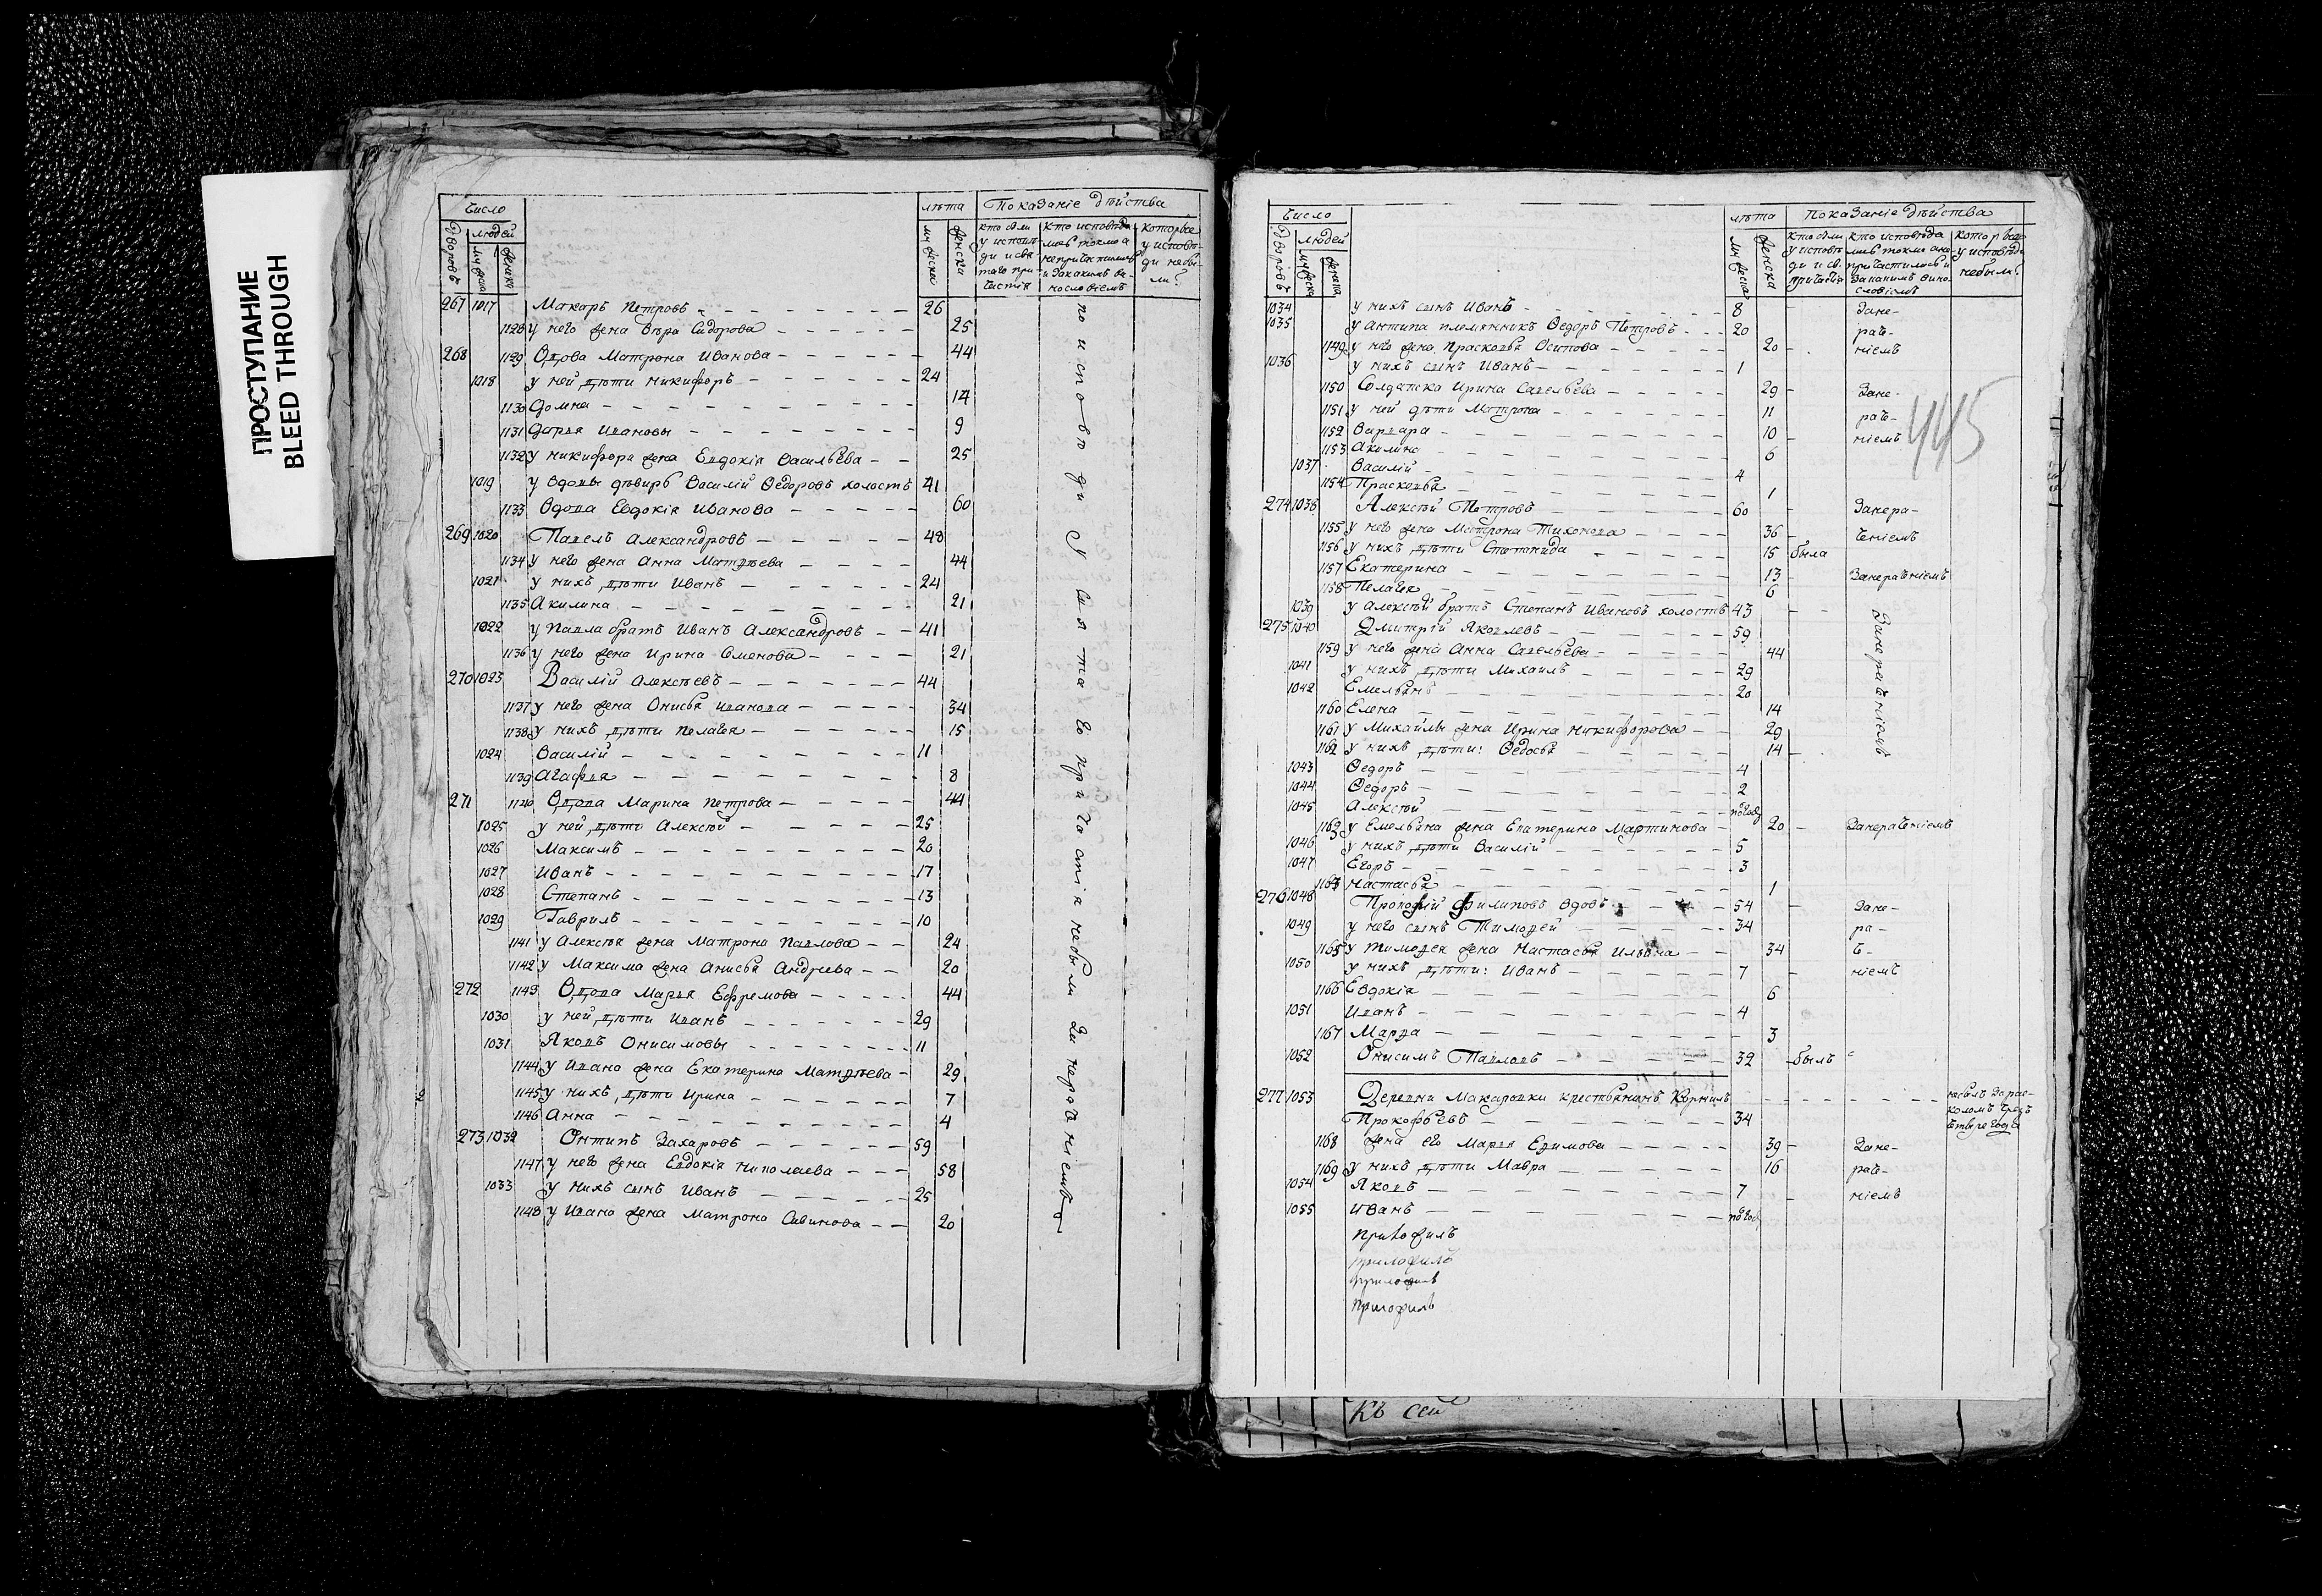 ПРОСТУПАНИЕ
BLEED THROUGH
Число
лѣта
Показаніе дѣйства
Дворовъ
людей
муж
женска
мужеска
женска
кто были у исповѣди и святаго причастія
кто исповѣдались токмо а не причастились и за какимъ винословіемъ
которые у исповѣди не были?
267 1017 Макаръ Петровъ 26
1128 у него жена Вѣра Сидорова 25
268 1129 Вдова Матрона Иванова 44
1018 у ней дѣти Никифоръ 24
1130 Домна 14
1131 Дарья Ивановы 9
1132 у Никифора жена Евдокія Васильева 25
1019 у вдовы дѣвирь Василій Ѳедоровъ холостъ 41
1133 Вдова Евдокія Иванова 60
269 1020 Павелъ Александровъ 48
1134 у него жена Анна Матвѣева 44
1021 у нихъ дѣти Иванъ 24
1135 Акилина 21
1022 у Павла братъ Иванъ Александровъ 41
1136 у него жена Ирина Семенова 21
270 1023 Василій Алексѣевъ 44
1137 у него жена Онисья Иванова 34
1138 у нихъ дѣти Пелагея 15
1024 Василій 11
1139 Агафья 8
271 1140 Вдова Марина Петрова 44
1025 у ней дѣти Алексѣй 25
1026 Максимъ 20
1027 Иванъ 17
1028 Степанъ 13
1029 Гаврилъ 10
1141 у Алексѣя жена Матрона Павлова 24
1142 у Максима жена Анисья Андреева 20
272 1143 Вдова Марья Ефремова 44
1030 у ней дѣти Иванъ 29
1031 Яковъ Онисимовы 11
1144 у Ивана жена Екатерина Матвѣева 29
1145 у нихъ дѣти Ирина 7
1146 Анна 4
273 1032 Онтипъ Захаровъ 59
1147 у него жена Евдокія Николаева 58
1033 у нихъ сынъ Иванъ 25
1148 у Ивана жена Матрона Савинова 20
по исповѣди у святаго причастія не были за нераченіемъ
Число
лѣта
показаніе дѣйства
Дворовъ
людей
мужеска
женска
мужеска
женска
кто были у исповѣди и св. причастія
кто исповѣдались токмо а не причастились и за какимъ винословіемъ
которые у исповѣди не были?
1034 у нихъ сынъ Иванъ 8 Зане-
1035 у Антипа племянникъ Ѳедоръ Петровъ 20 раче-
1149 у него жена Прасковья Осипова 20 ніемъ
1036 у нихъ сынъ Иванъ 1
1150 Солдатка Ирина Савельева 29 Зане-
1151 у ней дѣти Матрона 11 раче-
1152 Варвара 10 ніемъ
445
1153 Акилина 6
1037 Василій 4
1154 Прасковья 1
274 1038 Алексѣй Петровъ 60 Занера-
1155 у него жена Матрона Тихонова 36 ченіемъ
1156 у нихъ дѣти Степанида 15 была
1157 Екатерина 13 Занераченіемъ
1158 Пелагея 6
1039 у Алексѣй братъ Степанъ Ивановъ холостъ 43
275 1040 Дмитрій Яковлевъ 59
1159 у него жена Анна Савельева 44
1041 у нихъ дѣти Михаилъ 29
1042 Емельянъ 20
1160 Елена 14
1161 у Михайлы жена Ирина Никифорова 29
1162 у нихъ дѣти: Ѳедосья 14
1043 Ѳедоръ 4
1044 Ѳедоръ 2
1045 Алексѣй полгод
Занераченіемъ
1163 у Емельяна жена Екатерина Мартинова 20 Занераченіемъ
1046 у нихъ дѣти Василій 5
1047 Егоръ 3
1164 Настасья 1
276 1048 Прокофій Филиповъ вдовъ 54 Зане-
1049 у него сынъ Тимофей 34 ра-
1165 у Тимофея жена Настасья Ильина 34 че-
1050 у нихъ дѣти: Иванъ 7 ніемъ
1166 Евдокія 6
1051 Иванъ 4
1167 Марфа 3
1052 Онисимъ Павловъ 32 былъ
277 1053 Деревни Макаровки крестьянинъ Корнилъ
Прокофьевъ 34
небылъ за расколомъ
1168 жена его Марья Ефимова 39 Зане-
1169 у нихъ дѣти Мавра 16 раче-
1054 Яковъ 7 ніемъ
1055 Иванъ полгод
приложилъ
приложилъ
приложилъ
приложилъ
Къ сей